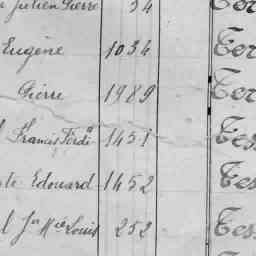 Julien Pierre 34
Eugène 1034 Ter
Pierre 1989 Ter
Francis Ferd. 1451 Tes
Edouard 1452 Tes
Jn Louis 252 Tes